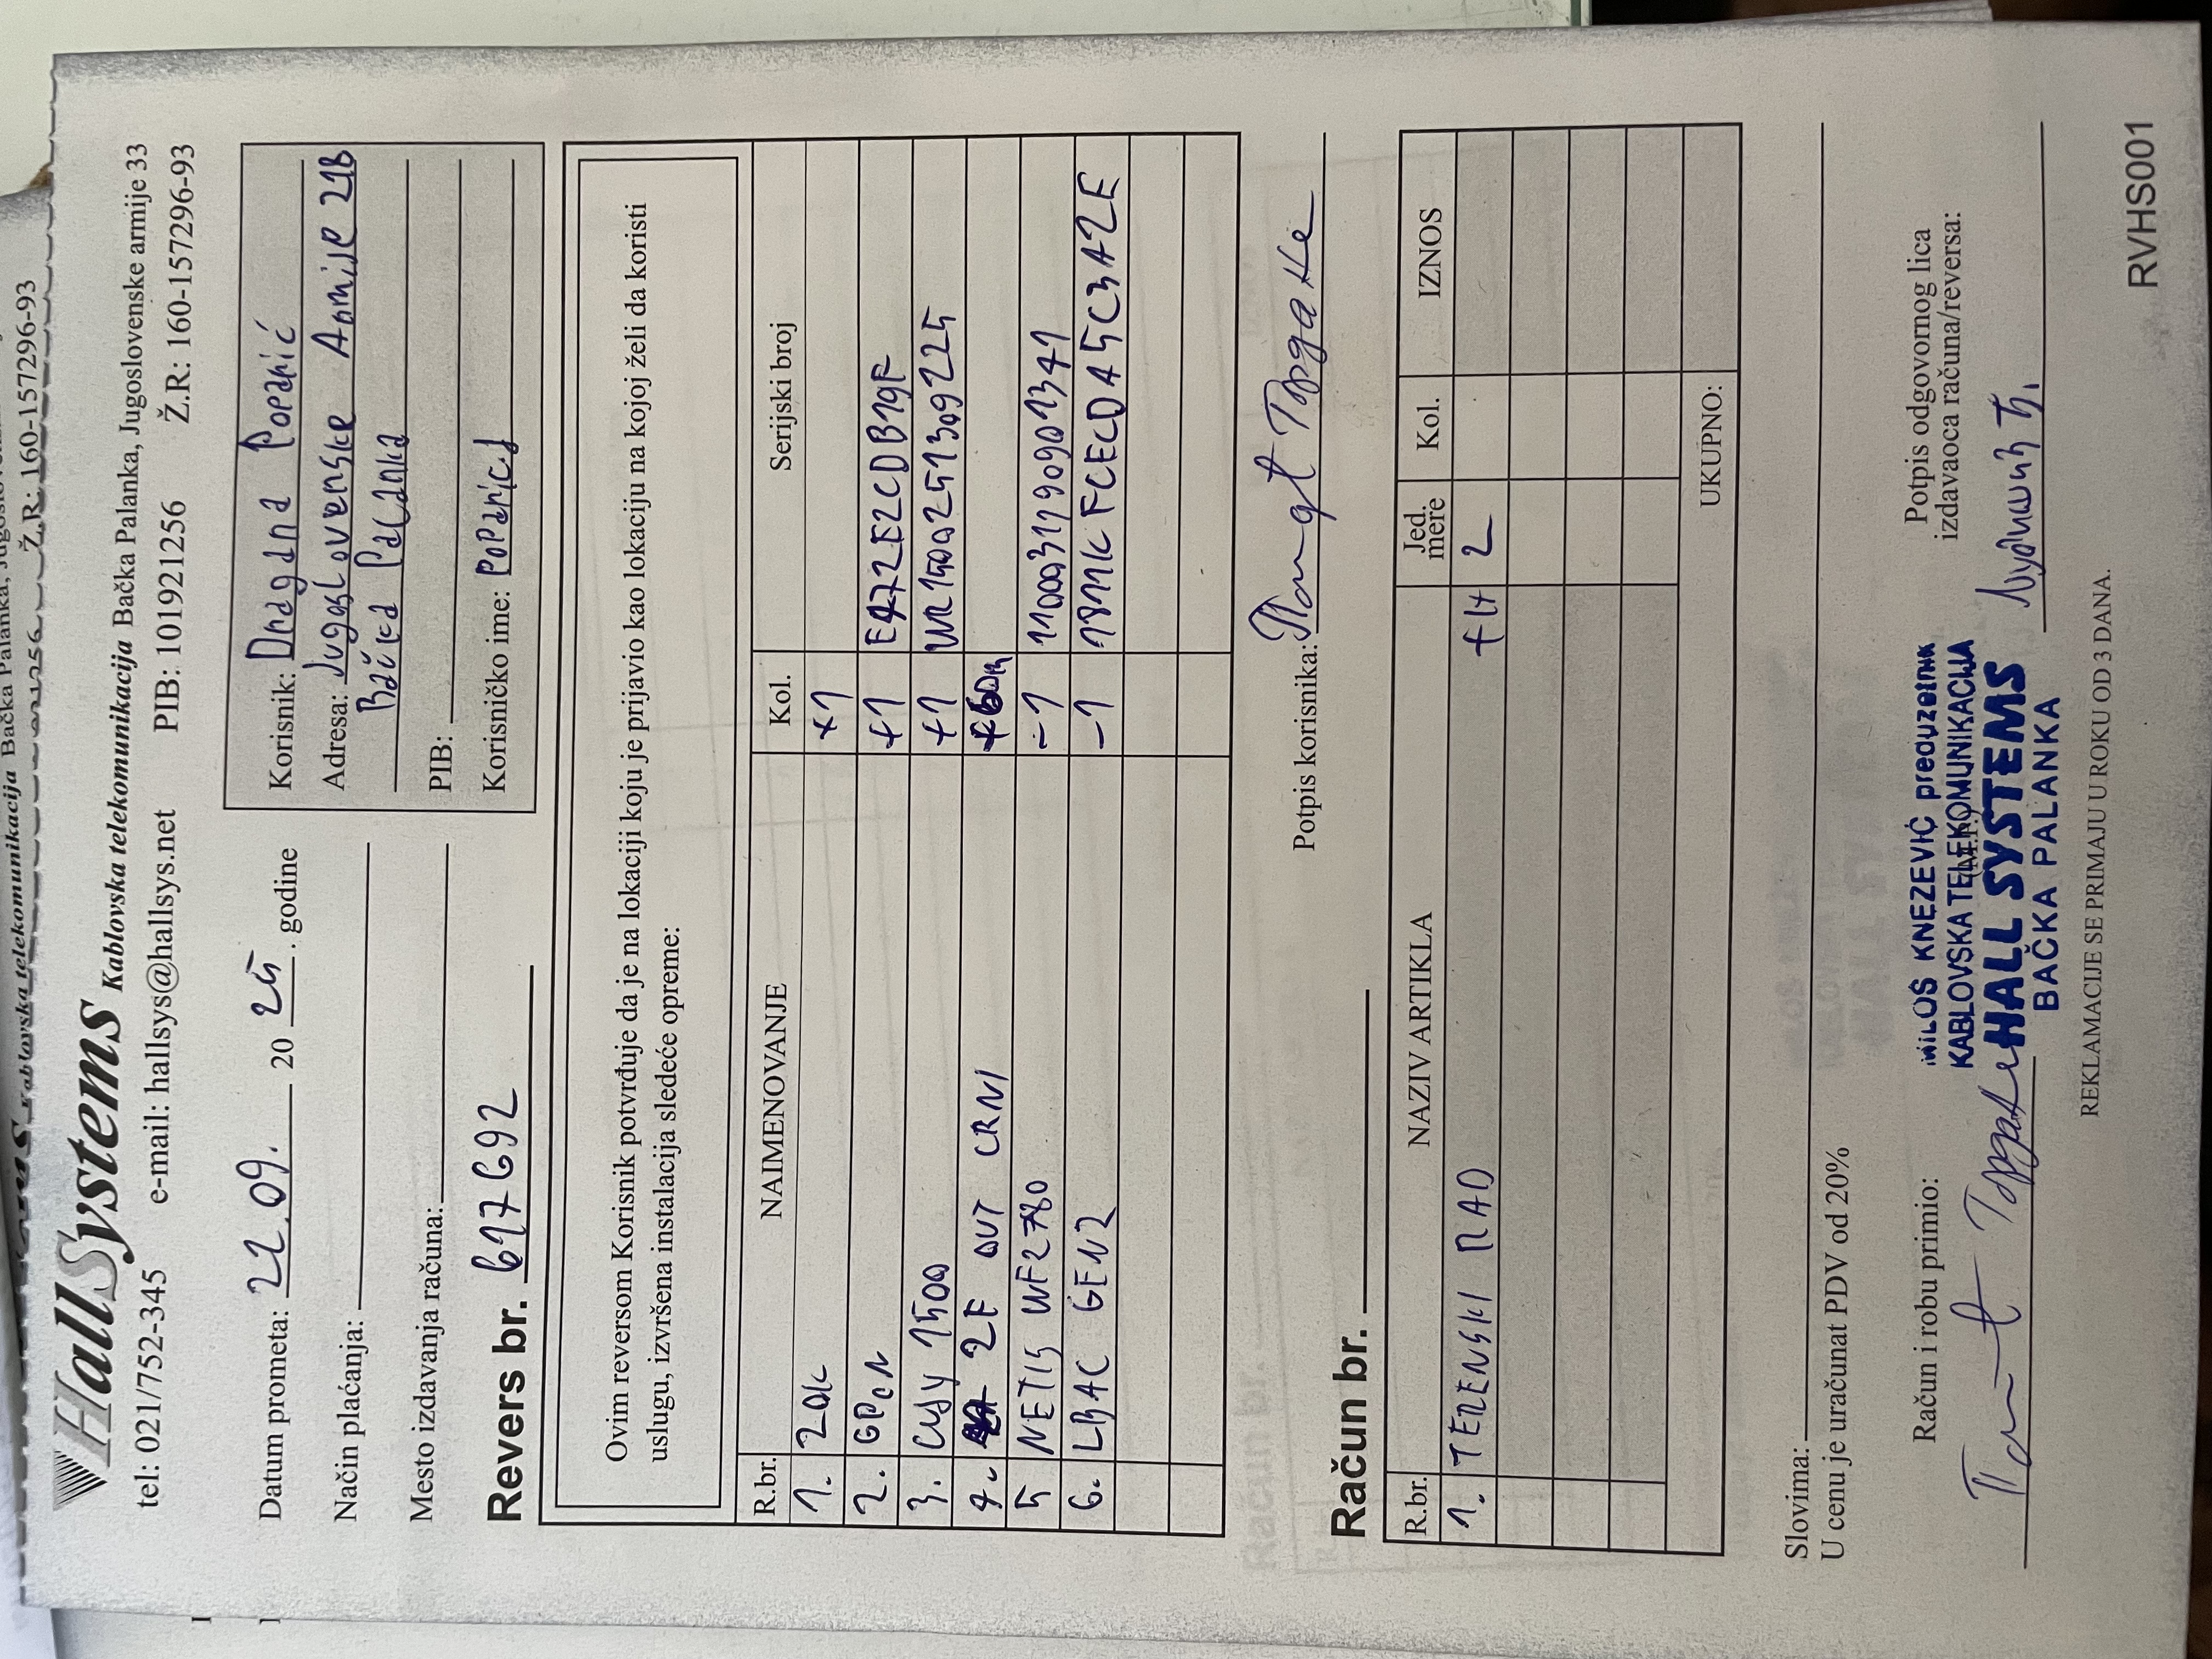 HallSystems Kablovska telekomunikacija Bačka Palanka, Jugoslovenske armije 33
tel: 021/752-345 e-mail: hallsys@hallsys.net PIB: 101921256 Ž.R: 160-157296-93
Datum prometa: 22.09. 20 25. godine
Način plaćanja:
Mesto izdavanja računa:
Korisnik: Dragana Poparić
Adresa: Jugoslovenske Armije 21B
Bačka Palanka
PIB:
Korisničko ime: PoPaRicd
Revers br. 617692
Ovim reversom Korisnik potvrđuje da je na lokaciji koju je prijavio kao lokaciju na kojoj želi da koristi
uslugu, izvršena instalacija sledeće opreme:
R.br. NAIMENOVANJE Kol. Serijski broj
1. 20K +1
2. GPON +1 E472E2CDB19F
3. CUDY 1500 +1 WR1500251309225
4. 2F OUT CRNI +60m
5 NETIS WF2780 -1 110031790901341
6. LBAC GEN2 -1 1811KFCECDA5C3A2E
Potpis korisnika:
Račun br.
R.br. NAZIV ARTIKLA Jed. mere Kol. IZNOS
1. TERENSKI RAD 2
UKUPNO:
Slovima:
U cenu je uračunat PDV od 20%
Račun i robu primio:
Potpis odgovornog lica
izdavaoca računa/reversa:
MILOŠ KNEZEVIĆ preduzetnik
KABLOVSKA TELEKOMUNIKACIJA
HALL SYSTEMS
BAČKA PALANKA
REKLAMACIJE SE PRIMAJU U ROKU OD 3 DANA.
RVHS001